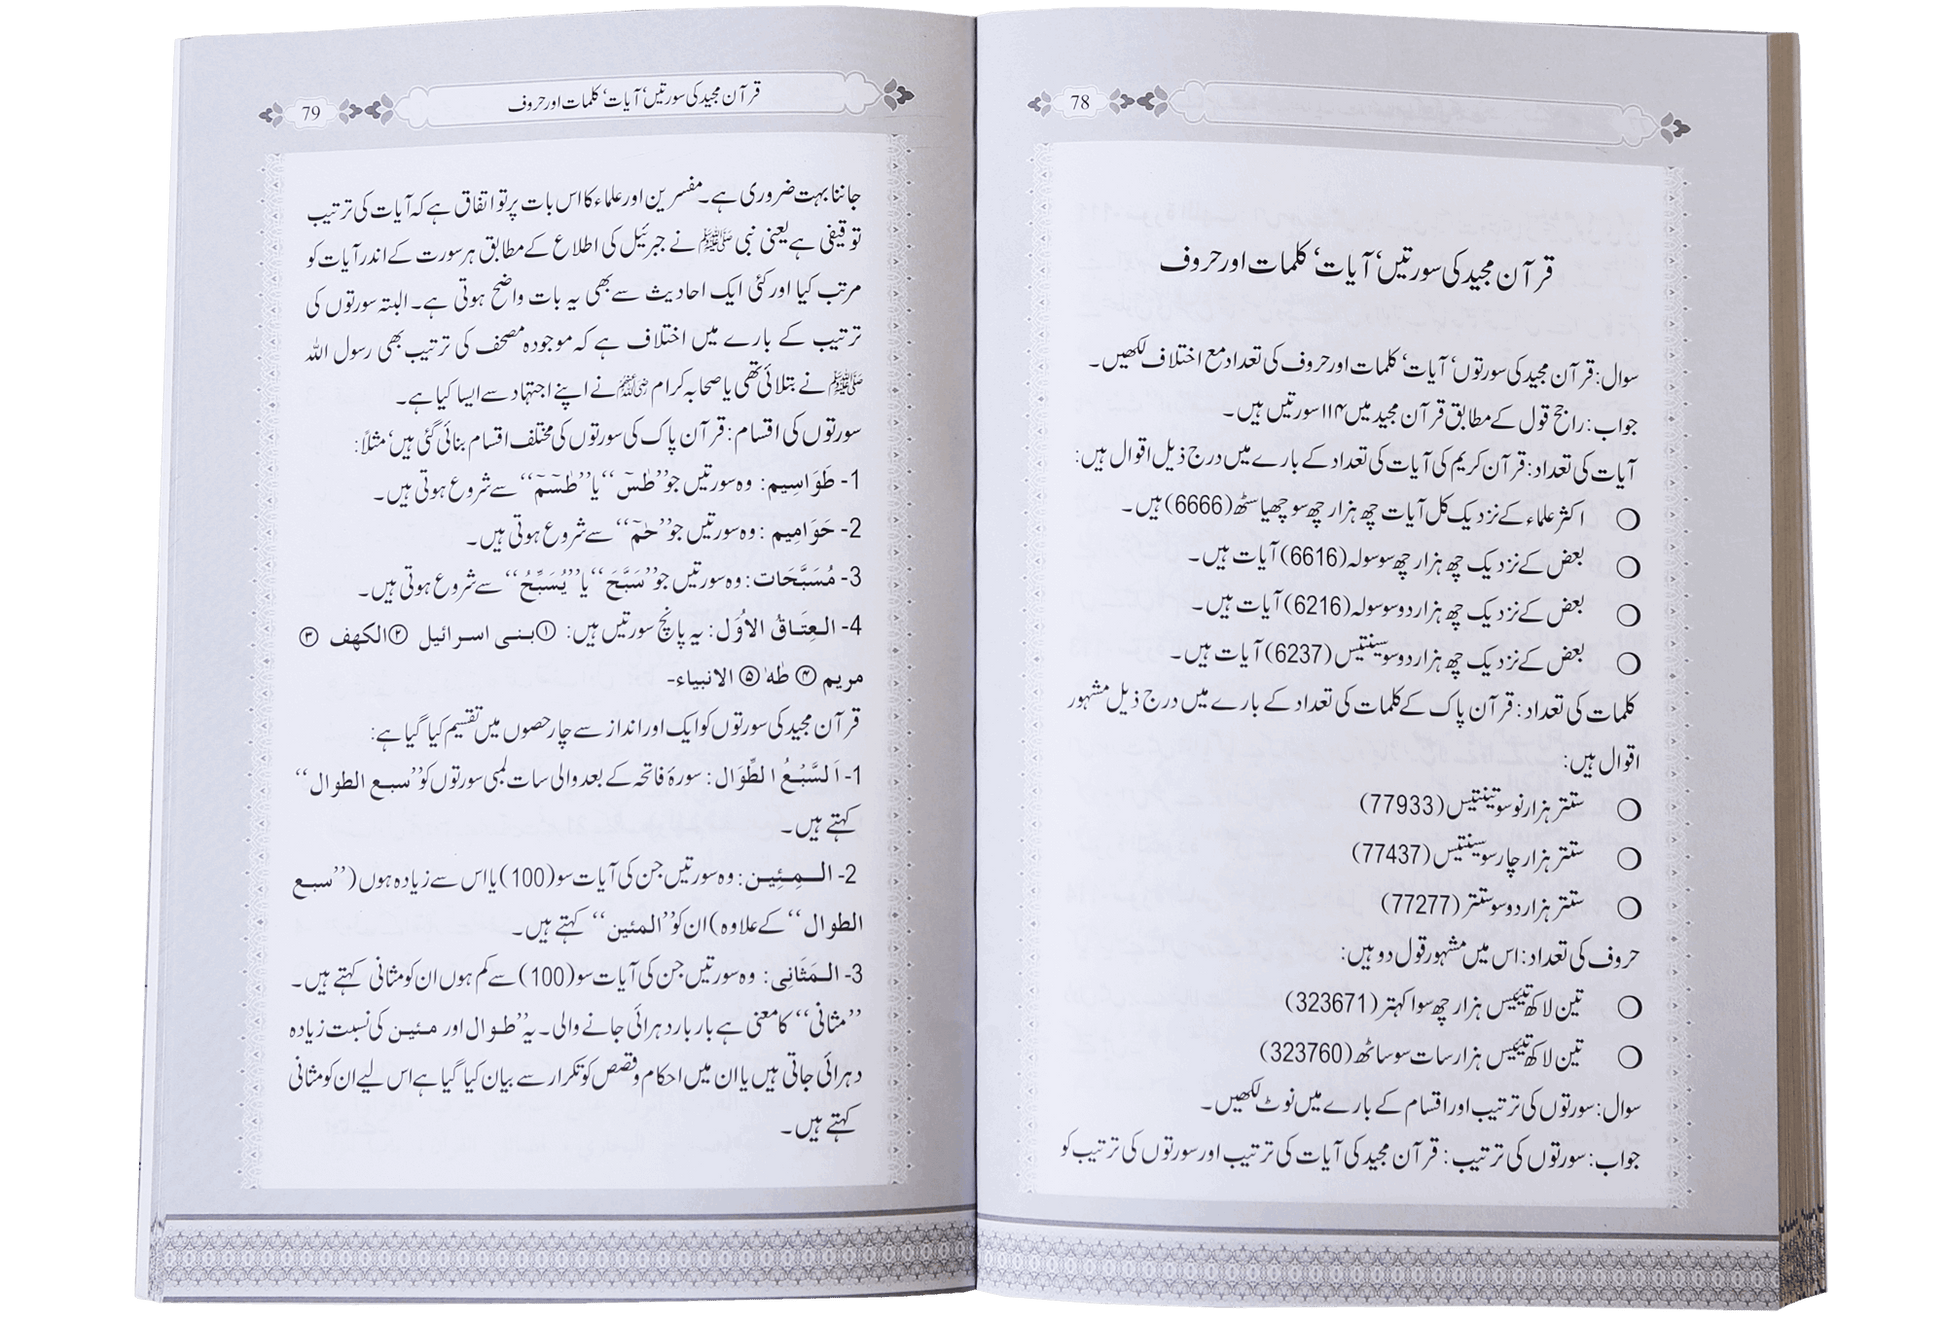 78
قرآن مجید کی سورتیں‘ آیات‘ کلمات اور حروف
سوال: قرآن مجید کی سورتوں‘ آیات‘ کلمات اور حروف کی تعداد مع اختلاف لکھیں۔
جواب: راجح قول کے مطابق قرآن مجید میں ۱۱۴ سورتیں ہیں۔
آیات کی تعداد: قرآن کریم کی آیات کی تعداد کے بارے میں درج ذیل اقوال ہیں:
○ اکثر علماء کے نزدیک کل آیات چھ ہزار چھ سو چھیاسٹھ (6666) ہیں۔
○ بعض کے نزدیک چھ ہزار چھ سو سولہ (6616) آیات ہیں۔
○ بعض کے نزدیک چھ ہزار دو سو سولہ (6216) آیات ہیں۔
○ بعض کے نزدیک چھ ہزار دو سو سینتیس (6237) آیات ہیں۔
کلمات کی تعداد: قرآن پاک کے کلمات کی تعداد کے بارے میں درج ذیل مشہور
اقوال ہیں:
○ ستتر ہزار نو سو تینتیس (77933)
○ ستتر ہزار چار سو سینتیس (77437)
○ ستتر ہزار دو سو ستتر (77277)
حروف کی تعداد: اس میں مشہور قول دو ہیں:
○ تین لاکھ تیئیس ہزار چھ سو اکہتر (323671)
○ تین لاکھ تیئیس ہزار سات سو ساٹھ (323760)
سوال: سورتوں کی ترتیب اور اقسام کے بارے میں نوٹ لکھیں۔
جواب: سورتوں کی ترتیب: قرآن مجید کی آیات کی ترتیب اور سورتوں کی ترتیب کو
قرآن مجید کی سورتیں‘ آیات‘ کلمات اور حروف
79
جاننا بہت ضروری ہے۔ مفسرین اور علماء کا اس بات پر تو اتفاق ہے کہ آیات کی ترتیب
توقیفی ہے یعنی نبی ﷺ نے جبرئیل کی اطلاع کے مطابق ہر سورت کے اندر آیات کو
مرتب کیا اور کئی ایک احادیث سے بھی یہ بات واضح ہوتی ہے۔ البتہ سورتوں کی
ترتیب کے بارے میں اختلاف ہے کہ موجودہ مصحف کی ترتیب بھی رسول اللہ
ﷺ نے بتلائی تھی یا صحابہ کرام رضی اللہ عنہم نے اپنے اجتہاد سے ایسا کیا ہے۔
سورتوں کی اقسام: قرآن پاک کی سورتوں کی مختلف اقسام بنائی گئی ہیں‘ مثلاً:
1- طَوَاسِیم: وہ سورتیں جو ’’طٰسٓ‘‘ یا ’’طٰسٓمٓ‘‘ سے شروع ہوتی ہیں۔
2- حَوَامِیم: وہ سورتیں جو ’’حٰمٓ‘‘ سے شروع ہوتی ہیں۔
3- مُسَبَّحَات: وہ سورتیں جو ’’سَبَّحَ‘‘ یا ’’یُسَبِّحُ‘‘ سے شروع ہوتی ہیں۔
4- الـعِتَـاقُ الاُوَل: یہ پانچ سورتیں ہیں: ①بـنـی اسـرائیل ②الکھف ③
مریم ④ طٰہٰ ⑤ الانبیاء-
قرآن مجید کی سورتوں کو ایک اور انداز سے چار حصوں میں تقسیم کیا گیا ہے:
1- اَلسَّبْـعُ الطِّوَال: سورۂ فاتحہ کے بعد والی سات لمبی سورتوں کو ’’سبـع الطوال‘‘
کہتے ہیں۔
2- الـمِئِیـن: وہ سورتیں جن کی آیات سو (100) یا اس سے زیادہ ہوں (’’سبـع
الطوال‘‘ کے علاوہ) ان کو ’’المئین‘‘ کہتے ہیں۔
3- الـمَثَانِی: وہ سورتیں جن کی آیات سو (100) سے کم ہوں ان کو مثانی کہتے ہیں۔
’’مثانی‘‘ کا معنی ہے بار بار دہرائی جانے والی۔ یہ ’’طـوال اور مـئیـن کی نسبت زیادہ
دہرائی جاتی ہیں یا ان میں احکام و قصص کو تکرار سے بیان کیا گیا ہے اس لیے ان کو مثانی
کہتے ہیں۔